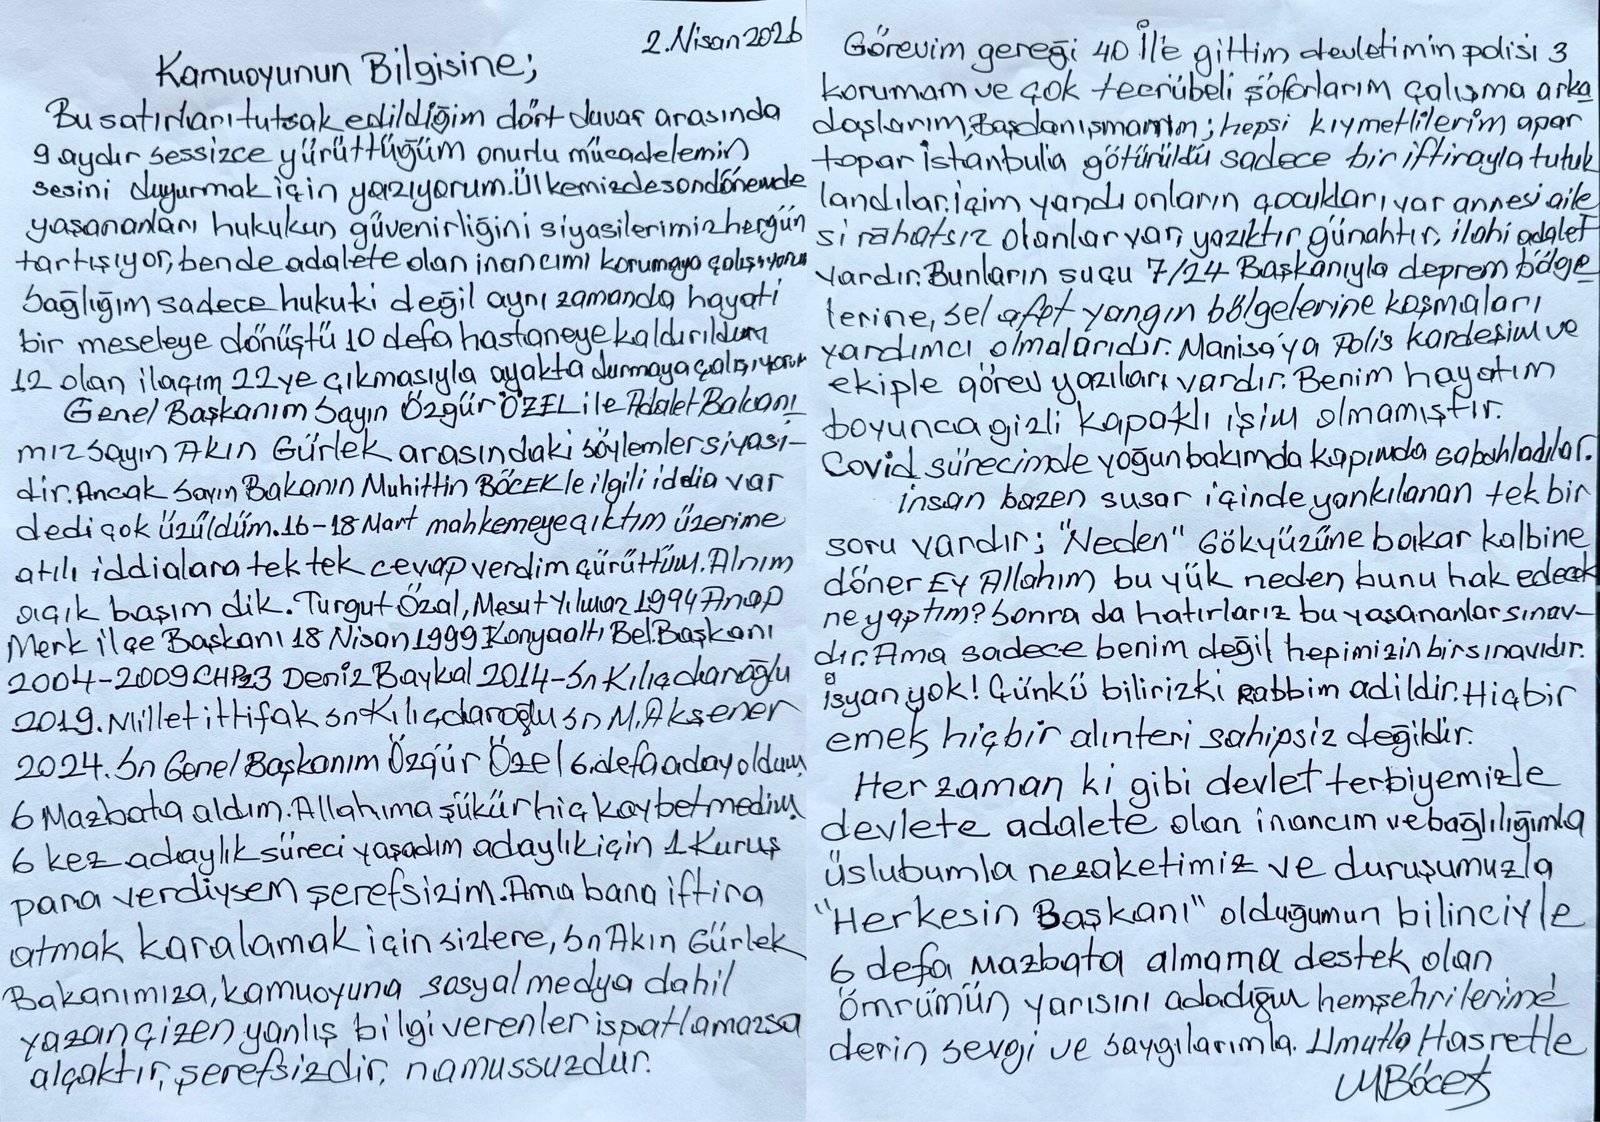 2.Nisan2026
Kamuoyunun Bilgisine;
Bu satırları tutsak edildiğim dört duvar arasında
9 aydır sessizce yürüttüğüm onurlu mücadelemin
sesini duyurmak için yazıyorum. Ülkemizde son dönemde
yaşananları hukukun güvenirliğini siyasilerimiz hergün
tartışıyor, bende adalete olan inancımı korumaya çalışıyorum
Sağlığım sadece hukuki değil aynı zamanda hayati
bir meseleye dönüştü 10 defa hastaneye kaldırıldım
12 olan ilaçım 22ye çıkmasıyla ayakta durmaya çalışıyorum
Genel Başkanım Sayın Özgür ÖZEL ile Adalet Bakanı
mız Sayın Akın Gürlek arasındaki söylemler siyasi-
dir. Ancak Sayın Bakanın Muhittin BÖCEKle ilgili iddia var
dedi çok üzüldüm. 16-18 Mart mahkemeye çıktım üzerime
atılı iddialara tek tek cevap verdim çürüttüm. Alnım
açık başım dik. Turgut Özal, Mesut Yılmaz 1994 Anap
Merk ilçe Başkanı 18 Nisan 1999 Konyaaltı Bel.Başkanı
2004-2009 CHP Deniz Baykal 2014-Sn Kılıçdaroğlu
2019. Millet ittifak Sn Kılıçdaroğlu Sn M.Akşener
2024. Sn Genel Başkanım Özgür Özel 6.defa aday oldum
6 Mazbata aldım. Allahıma şükür hiç kaybetmedim,
6 kez adaylık süreci yaşadım adaylık için 1 Kuruş
para verdiysem şerefsizim. Ama bana iftira
atmak karalamak için sizlere, Sn Akın Gürlek
Bakanımıza, kamuoyuna sosyal medya dahil
yazan çizen yanlış bilgi verenler ispatlamazsa
alçaktır, şerefsizdir, namussuzdur.
Görevim gereği 40 İl'e gittim devletimin polisi 3
korumam ve çok tecrübeli şöforlarım çalışma arka
daşlarım, Başdanışmanım; hepsi kıymetlilerim apar
topar İstanbul'a götürüldü sadece bir iftirayla tutuk
landılar. içim yandı onların çocukları var annesi aile
si rahatsız olanlar var, yazıktır günahtır, ilahi adalet
vardır. Bunların suçu 7/24 Başkanıyla deprem bölge
lerine, sel afet yangın bölgelerine koşmaları
yardımcı olmalarıdır. Manisa'ya Polis kardeşim ve
ekiple görev yazıları vardır. Benim hayatım
boyunca gizli kapaklı işim olmamıştır.
Covid sürecimde yoğun bakımda kapımda sabahladılar.
insan bazen susar içinde yankılanan tek bir
soru vardır; "Neden" Gökyüzüne bakar kalbine
döner Ey Allahım bu yük neden bunu hak edecek
ne yaptım? Sonra da hatırlarız bu yaşananlar sınav-
dır. Ama sadece benim değil hepimizin bir sınavıdır.
isyan yok! Çünkü bilirizki Rabbim adildir. Hiçbir
emek hiçbir alınteri sahipsiz değildir.
Her zaman ki gibi devlet terbiyemizle
devlete adalete olan inancım ve bağlılığımla
üslubumla nezaketimiz ve duruşumuzla
"Herkesin Başkanı" olduğumun bilinciyle
6 defa Mazbata almama destek olan
Ömrümün yarısını adadığım hemşehrilerime
derin sevgi ve saygılarımla. Umutla Hasretle
MBöcek